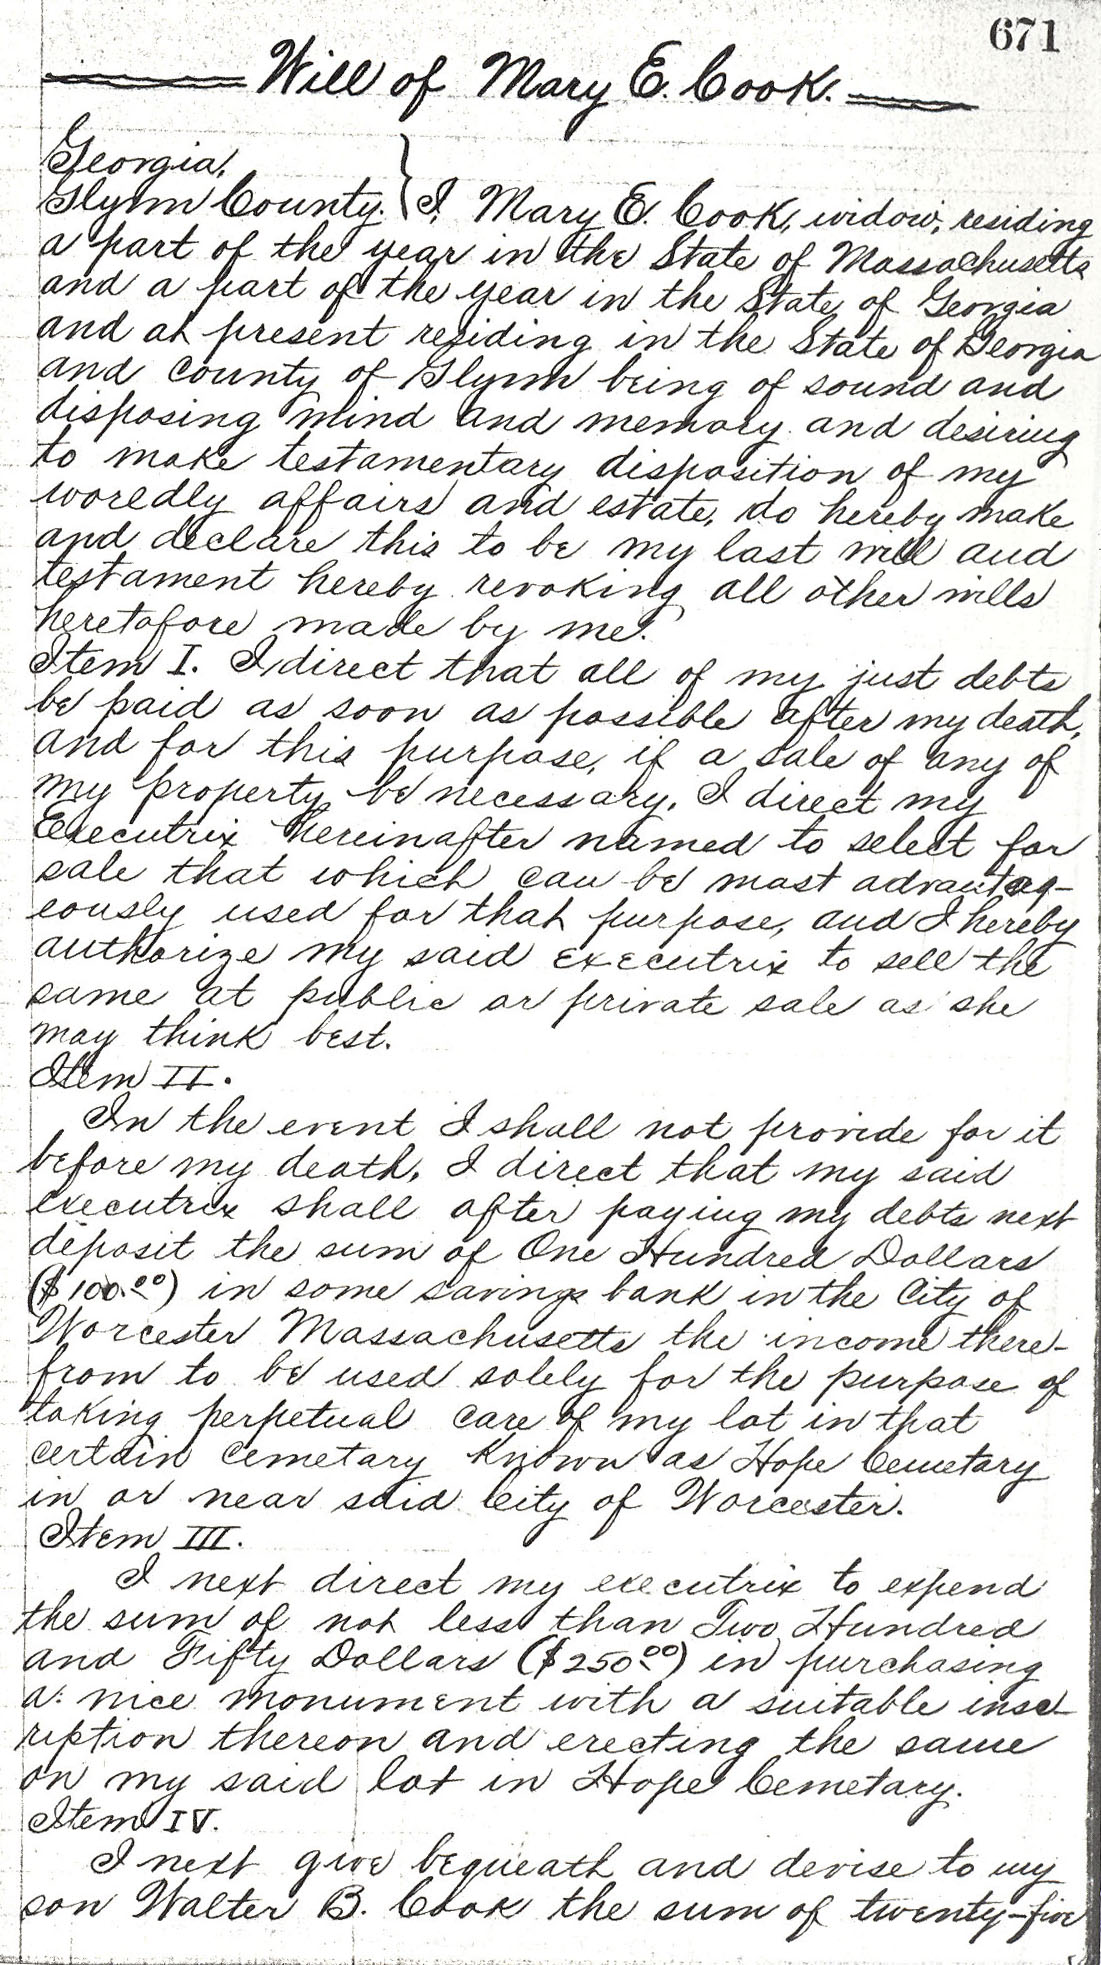 671
Will of Mary E. Cook.
Georgia,
Glynn County. } I, Mary E. Cook, widow, residing
a part of the year in the State of Massachusetts
and a part of the year in the State of Georgia
and at present residing in the State of Georgia
and County of Glynn being of sound and
disposing mind and memory and desiring
to make testamentary disposition of my
woredly affairs and estate, do hereby make
and declare this to be my last will and
testament hereby revoking all other wills
heretofore made by me.
Item I. I direct that all of my just debts
be paid as soon as possible after my death,
and for this purpose, if a sale of any of
my property be necessary, I direct my
Executrix hereinafter named to select for
sale that which can be most advantag-
eously used for that purpose, and I hereby
authorize my said executrix to sell the
same at public or private sale as she
may think best.
Item II.
In the event I shall not provide for it
before my death, I direct that my said
executrix shall after paying my debts next
deposit the sum of One Hundred Dollars
($100.00) in some savings bank in the City of
Worcester Massachusetts the income there-
from to be used solely for the purpose of
taking perpetual care of my lot in that
certain cemetary known as Hope Cemetary
in or near said City of Worcester.
Item III.
I next direct my executrix to expend
the sum of not less than Two Hundred
and Fifty Dollars ($250.00) in purchasing
a nice monument with a suitable insc-
ription thereon and erecting the same
on my said lot in Hope Cemetary.
Item IV.
I next give bequeath and devise to my
son Walter B. Cook the sum of twenty-five